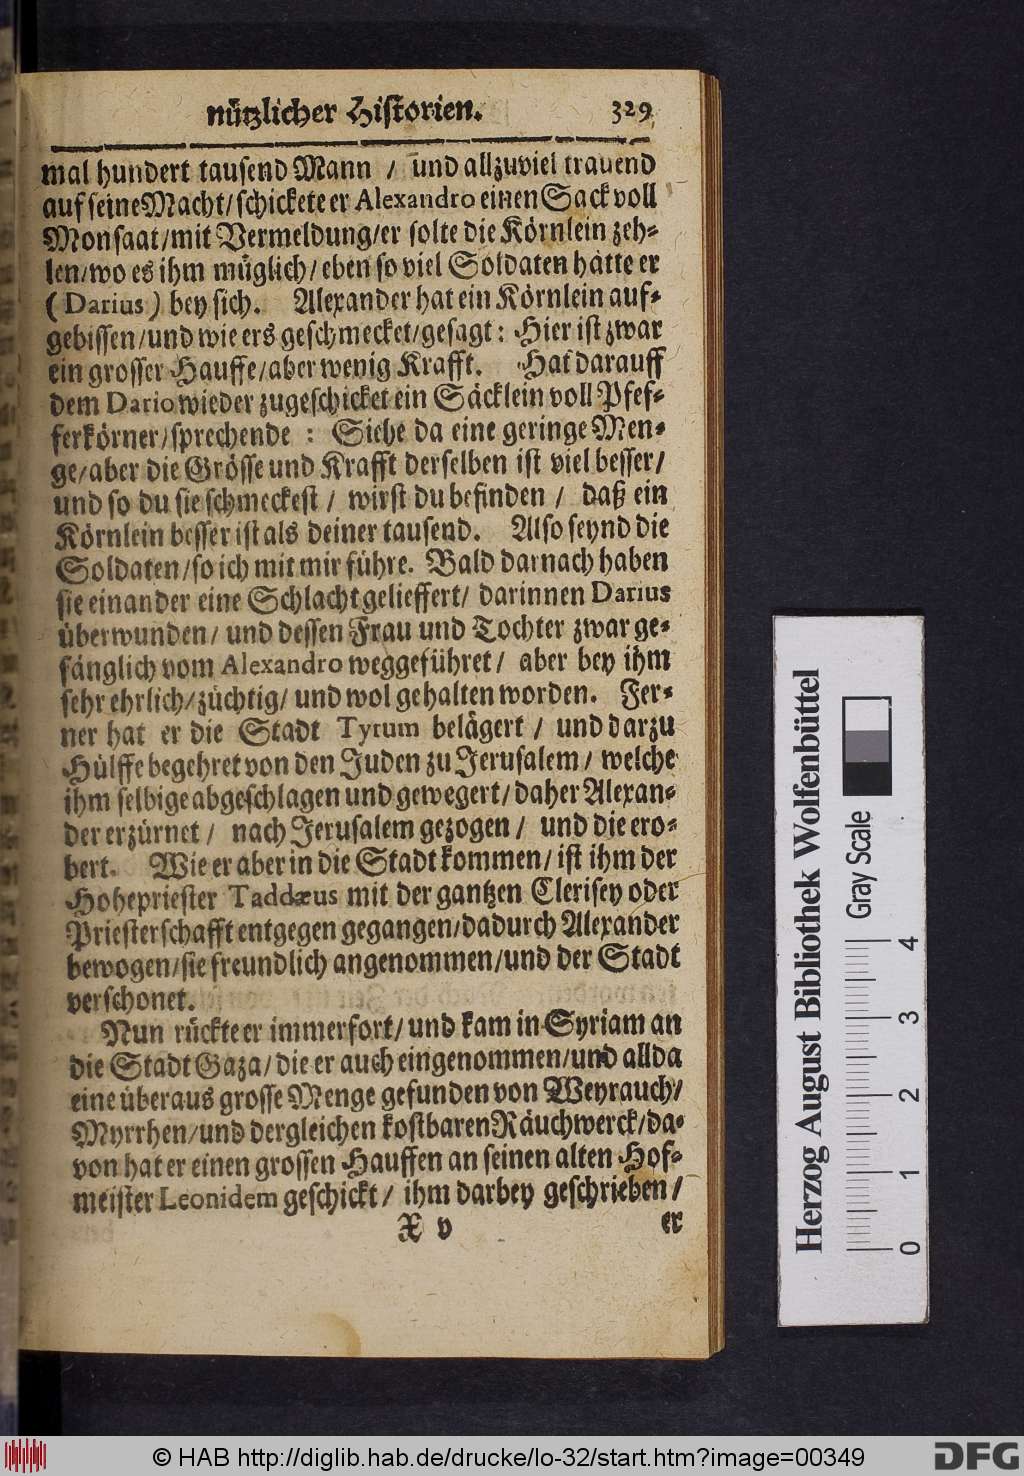 nützlicher Historien. 329
mal hundert tausend Mann / und allzuviel trauend
auf seine Macht/ schickete er Alexandro einen Sack voll
Monsaat/ mit Vermeldung/ er solte die Körnlein zeh-
len/ wo es ihm müglich/ eben so viel Soldaten hätte er
(Darius) bey sich. Alexander hat ein Körnlein auf-
gebissen/ und wie ers geschmecket/ gesagt: Hier ist zwar
ein grosser Hauffe/ aber wenig Krafft. Hat darauff
dem Dario wieder zugeschicket ein Säcklein voll Pfef-
ferkörner/ sprechende : Siehe da eine geringe Men-
ge/ aber die Grösse und Krafft derselben ist viel besser/
und so du sie schmeckest / wirst du befinden / daß ein
Körnlein besser ist als deiner tausend. Also seynd die
Soldaten/ so ich mit mir führe. Bald darnach haben
sie einander eine Schlacht gelieffert/ darinnen Darius
überwunden/ und dessen Frau und Tochter zwar ge-
fänglich vom Alexandro weggeführet / aber bey ihm
sehr ehrlich/ züchtig/ und wol gehalten worden. Fer-
ner hat er die Stadt Tyrum belägert / und darzu
Hülffe begehret von den Juden zu Jerusalem/ welche
ihm selbige abgeschlagen und gewegert/ daher Alexan-
der erzürnet / nach Jerusalem gezogen / und die ero-
bert. Wie er aber in die Stadt kommen/ ist ihm der
Hohepriester Taddæus mit der gantzen Clerisey oder
Priesterschafft entgegen gegangen/ dadurch Alexander
bewogen/ sie freundlich angenommen/ und der Stadt
verschonet.
Nun rückte er immerfort/ und kam in Syriam an
die Stadt Gaza/ die er auch eingenommen/ und allda
eine überaus grosse Menge gefunden von Weyrauch/
Myrrhen/ und dergleichen kostbaren Räuchwerck/ da-
von hat er einen grossen Hauffen an seinen alten Hof-
meister Leonidem geschickt/ ihm darbey geschrieben /
X v er
Herzog August Bibliothek Wolfenbüttel
Gray Scale
0 1 2 3 4
© HAB http://diglib.hab.de/drucke/lo-32/start.htm?image=00349
DFG